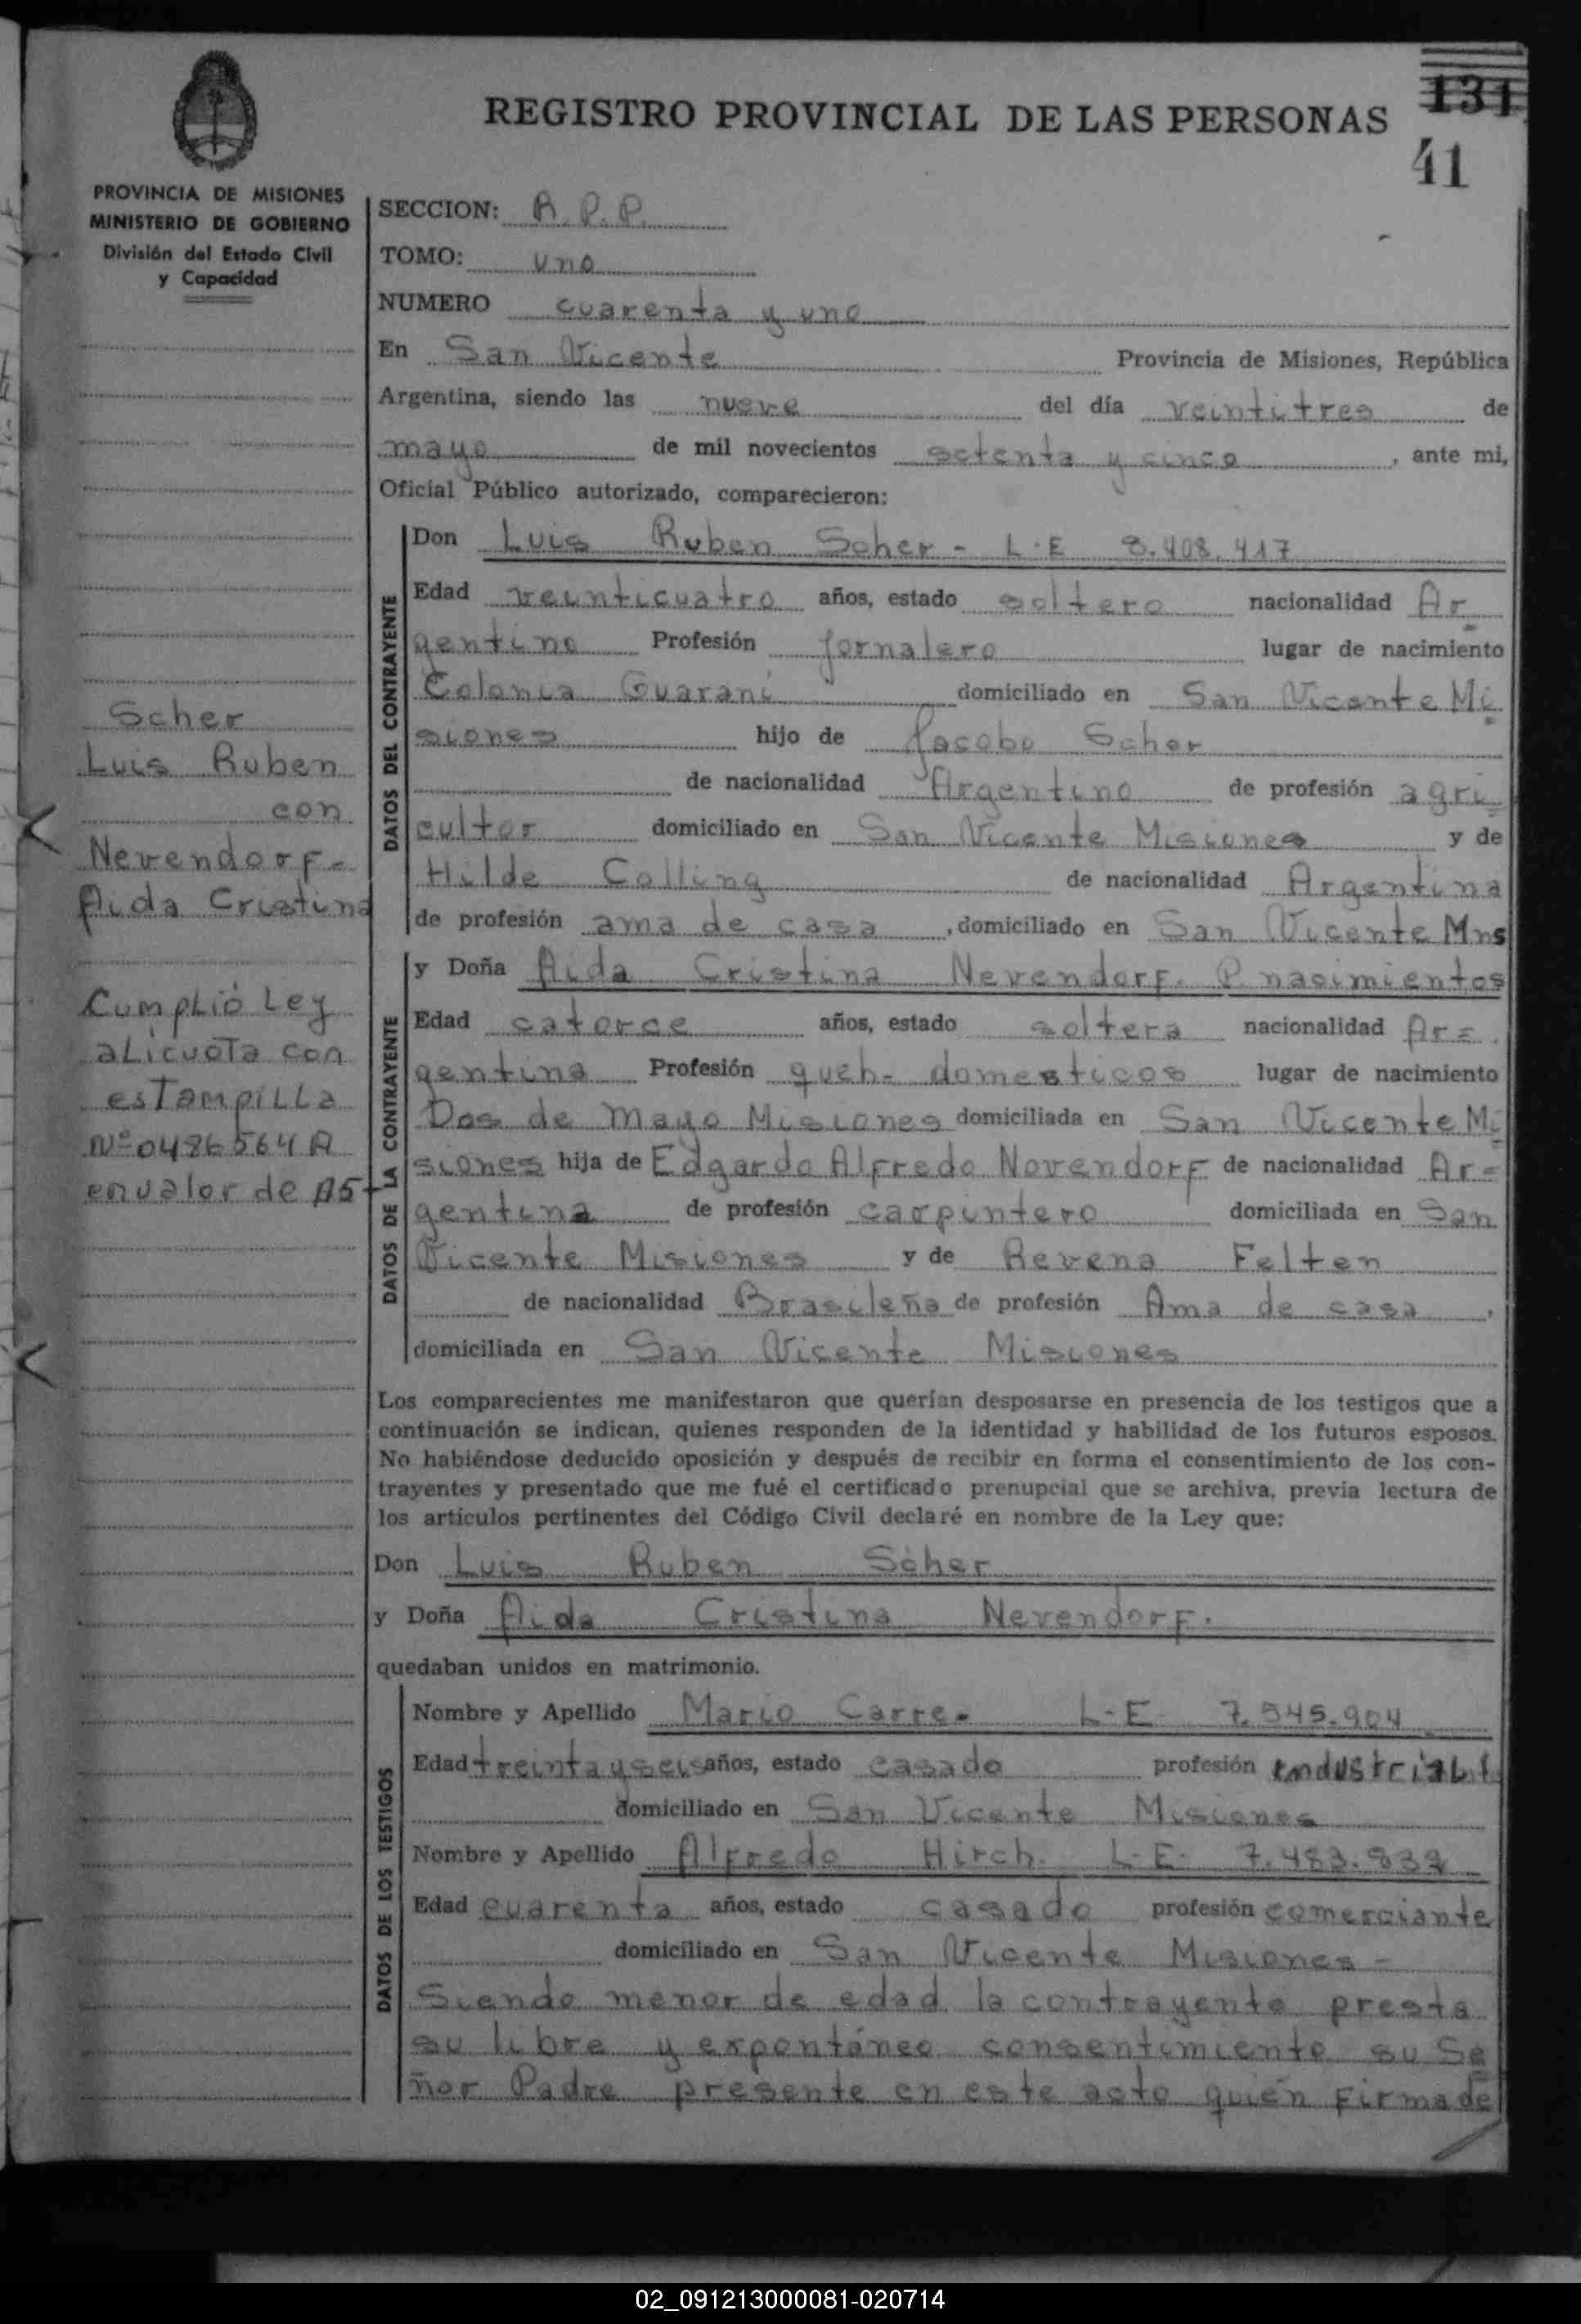 REGISTRO PROVINCIAL DE LAS PERSONAS
131
41
PROVINCIA DE MISIONES
MINISTERIO DE GOBIERNO
División del Estado Civil
y Capacidad
SECCION: R.P.P.
TOMO: uno
NUMERO cuarenta y uno
En San Vicente Provincia de Misiones, República
Argentina, siendo las nueve del día veintitres de
mayo de mil novecientos setenta y cinco, ante mi,
Oficial Público autorizado, comparecieron:
DATOS DEL CONTRAYENTE
Don Luis Ruben Scher - L.E 8.408.417
Edad veinticuatro años, estado soltero nacionalidad Ar
gentino Profesión jornalero lugar de nacimiento
Colonia Guarani domiciliado en San Vicente Mi
siones hijo de Jacobo Scher
de nacionalidad Argentino de profesión agri
cultor domiciliado en San Vicente Misiones y de
Hilde Colling de nacionalidad Argentina
de profesión ama de casa, domiciliado en San Vicente Mns
Scher
Luis Ruben
con
Nevendorf-
Aida Cristina
Cumplió Ley
alicuota con
estampilla
Nº 0486564 A
en valor de
DATOS DE LA CONTRAYENTE
y Doña Aida Cristina Nevendorf. P. nacimientos
Edad catorce años, estado soltera nacionalidad Ar=
gentina Profesión queh- domesticos lugar de nacimiento
Dos de mayo Misiones domiciliada en San Vicente Mi
siones hija de Edgardo Alfredo Novendorf de nacionalidad Ar=
gentina de profesión carpintero domiciliada en San
Vicente Misiones y de Revena Felten
de nacionalidad Brasileña de profesión Ama de casa,
domiciliada en San Vicente Misiones
Los comparecientes me manifestaron que querían desposarse en presencia de los testigos que a
continuación se indican, quienes responden de la identidad y habilidad de los futuros esposos.
No habiéndose deducido oposición y después de recibir en forma el consentimiento de los con-
trayentes y presentado que me fué el certificado prenupcial que se archiva, previa lectura de
los artículos pertinentes del Código Civil declaré en nombre de la Ley que:
Don Luis Ruben Scher
y Doña Aida Cristina Nevendorf.
quedaban unidos en matrimonio.
DATOS DE LOS TESTIGOS
Nombre y Apellido Mario Carre- L.E. 7.545.904
Edad treinta y seis años, estado casado profesión
domiciliado en San Vicente Misiones
Nombre y Apellido Alfredo Hirch. L.E. 7.483.832
Edad cuarenta años, estado casado profesión comerciante
domiciliado en San Vicente Misiones -
Siendo menor de edad la contrayente presta
su libre y expontáneo consentimiento su Se
ñor Padre presente en este acto quién firma de
02_091213000081-020714